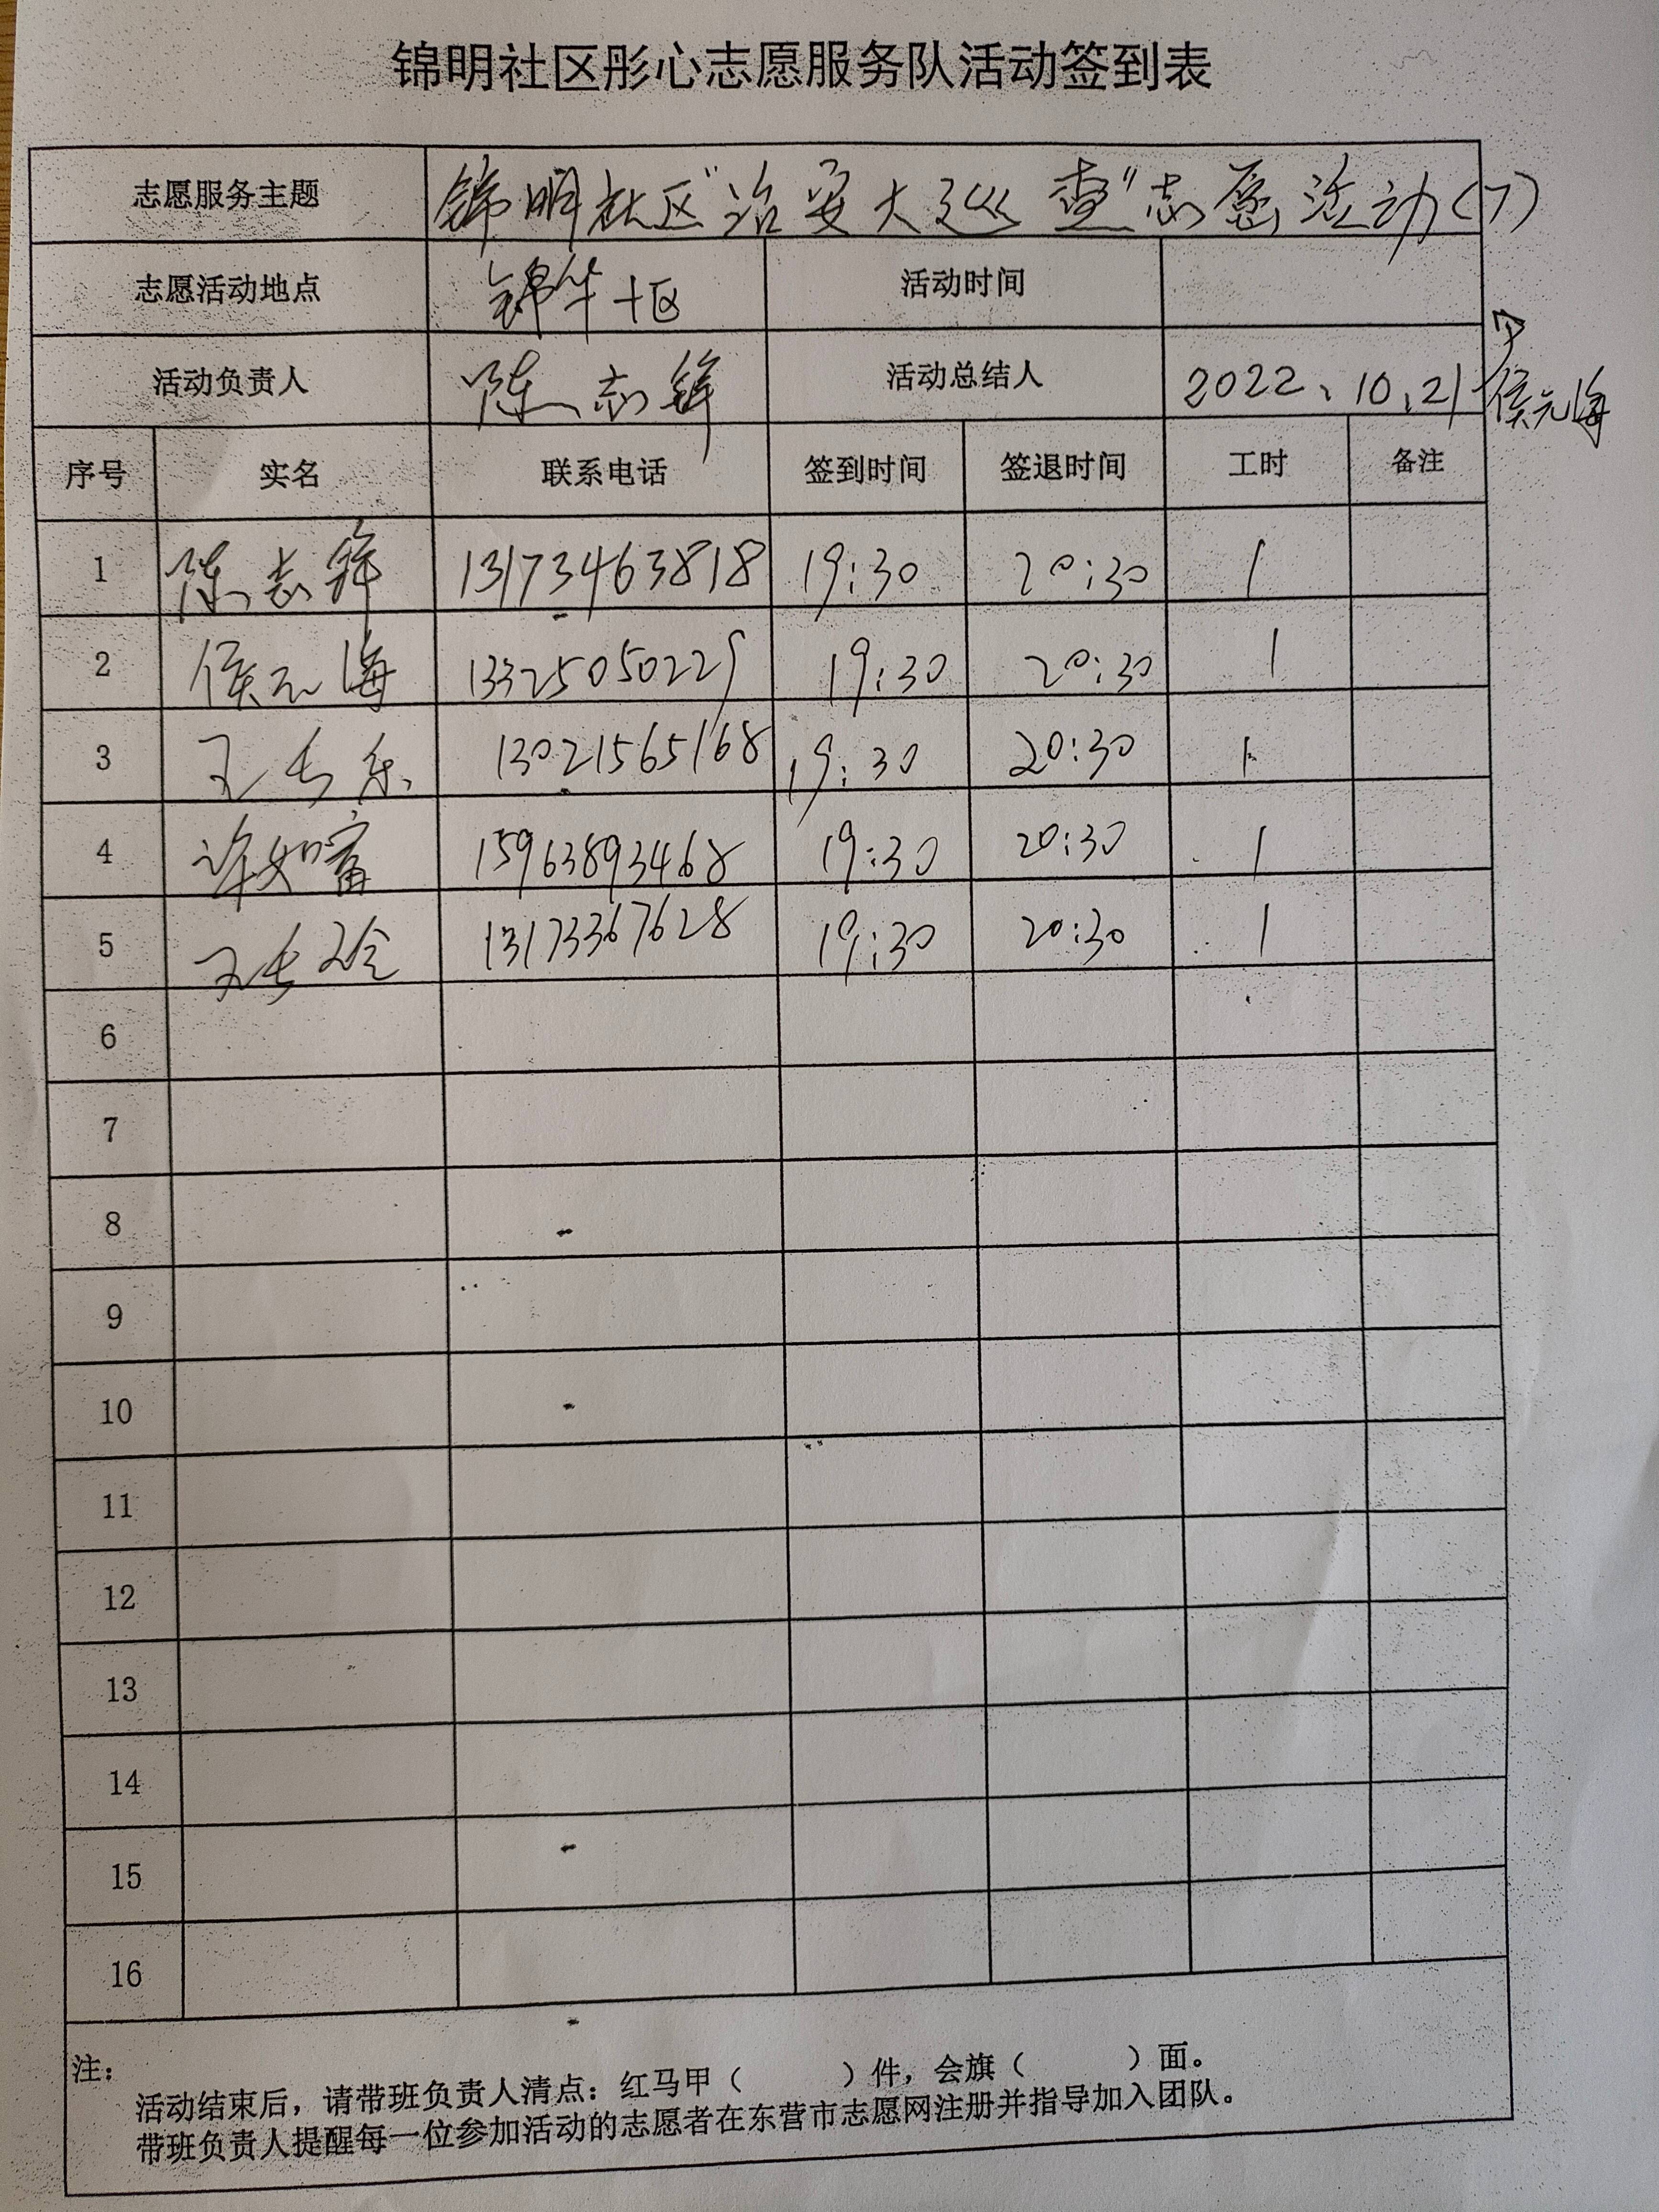 锦明社区彤心志愿服务队活动签到表
志愿服务主题 锦明社区"治安大巡查"志愿活动(7)
志愿活动地点 锦华十区 活动时间
活动负责人 陈志锋 活动总结人 2022、10、21 侯元海
序号 实名 联系电话 签到时间 签退时间 工时 备注
1 陈志锋 13173463818 19:30 20:30 1
2 侯元海 13325050229 19:30 20:30 1
3 王长乐 13021565168 19:30 20:30 1
4 许如富 15963893468 19:30 20:30 1
5 王长 13173367628 19:30 20:30 1
6
7
8
9
10
11
12
13
14
15
16
注：
活动结束后，请带班负责人清点：红马甲（ ）件，会旗（ ）面。
带班负责人提醒每一位参加活动的志愿者在东营市志愿网注册并指导加入团队。